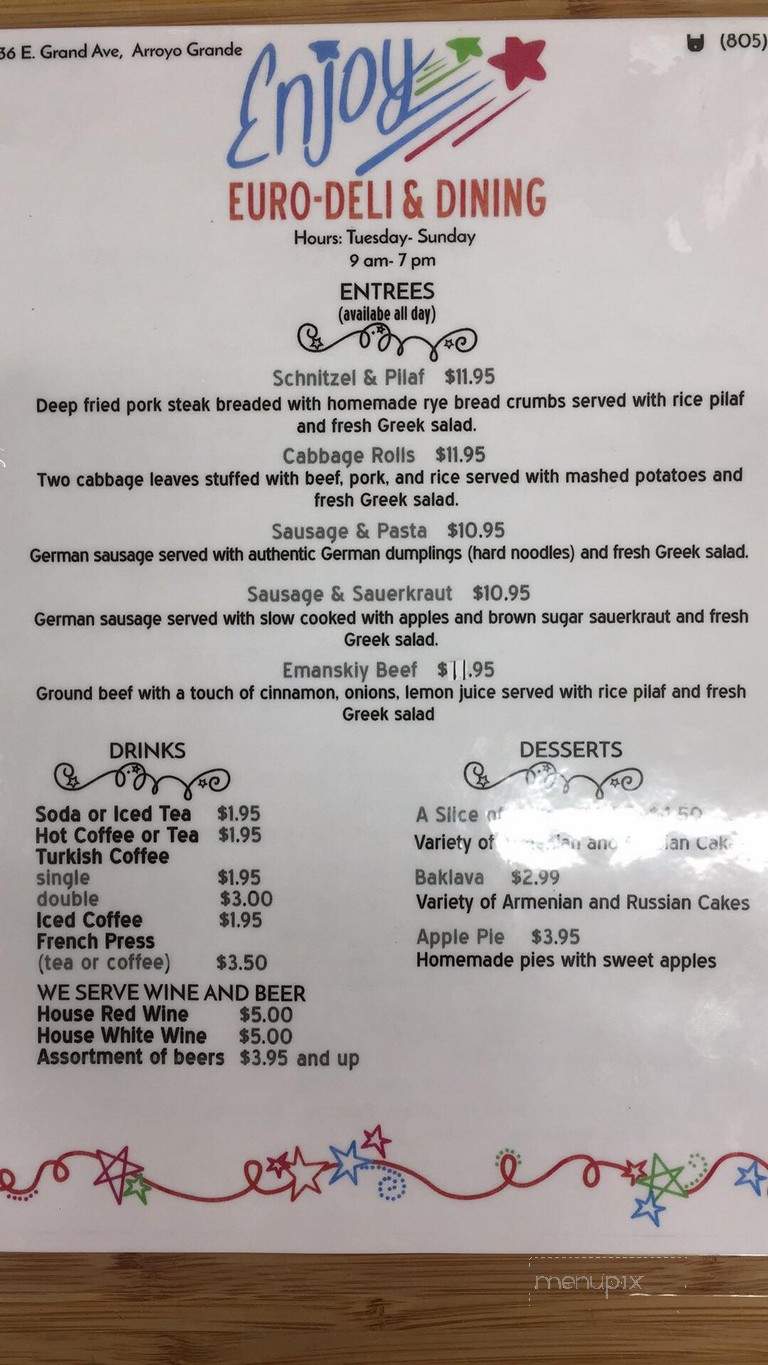 36 E. Grand Ave, Arroyo Grande
(805)
Enjoy
EURO-DELI & DINING
Hours: Tuesday- Sunday
9 am- 7 pm
ENTREES
(availabe all day)
Schnitzel & Pilaf $11.95
Deep fried pork steak breaded with homemade rye bread crumbs served with rice pilaf
and fresh Greek salad.
Cabbage Rolls $11.95
Two cabbage leaves stuffed with beef, pork, and rice served with mashed potatoes and
fresh Greek salad.
Sausage & Pasta $10.95
German sausage served with authentic German dumplings (hard noodles) and fresh Greek salad.
Sausage & Sauerkraut $10.95
German sausage served with slow cooked with apples and brown sugar sauerkraut and fresh
Greek salad.
Emanskiy Beef $11.95
Ground beef with a touch of cinnamon, onions, lemon juice served with rice pilaf and fresh
Greek salad
DRINKS
Soda or Iced Tea $1.95
Hot Coffee or Tea $1.95
Turkish Coffee
single $1.95
double $3.00
Iced Coffee $1.95
French Press
(tea or coffee) $3.50
WE SERVE WINE AND BEER
House Red Wine $5.00
House White Wine $5.00
Assortment of beers $3.95 and up
DESSERTS
A Slice of
Variety of and
Baklava $2.99
Variety of Armenian and Russian Cakes
Apple Pie $3.95
Homemade pies with sweet apples
menupix